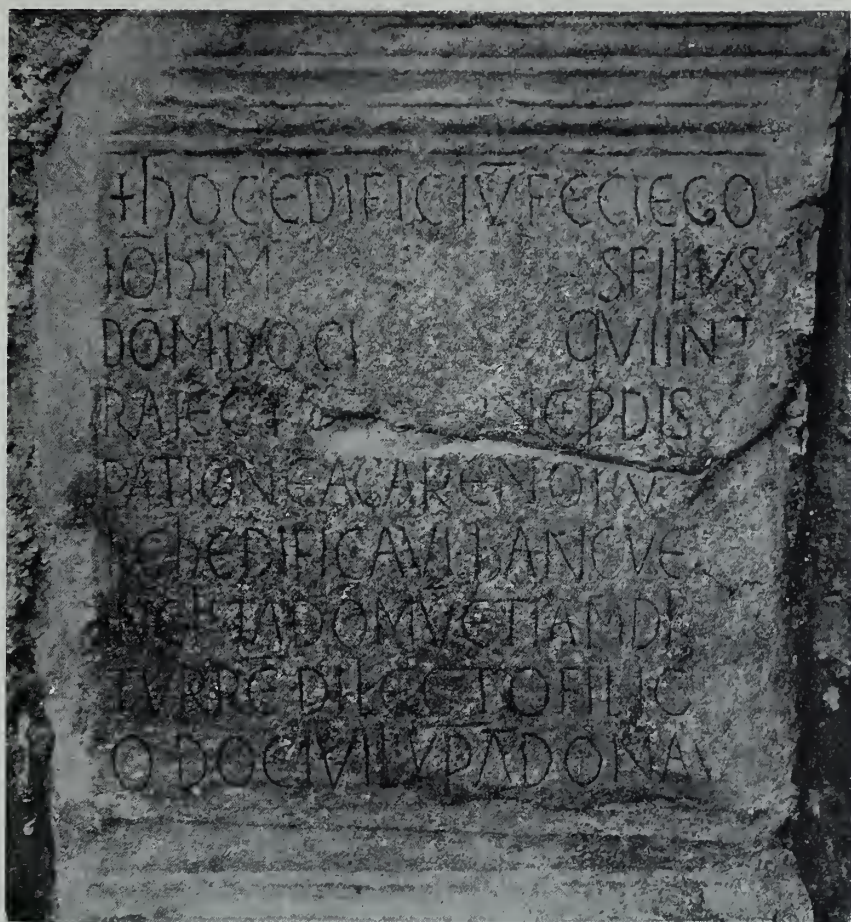 +hOCEDIFICIV̄FECIEGO
IŌhIM SFILIVS
DŌMDOCI QVIINT
RAIECT NEPDIS
PATIONEACARENOLIV
hEDIFICAVIhANCVE
TADOMV̄ETIAMDI
TVRRĒDILECTOFILIC
ODOCIVILVPĀDONA